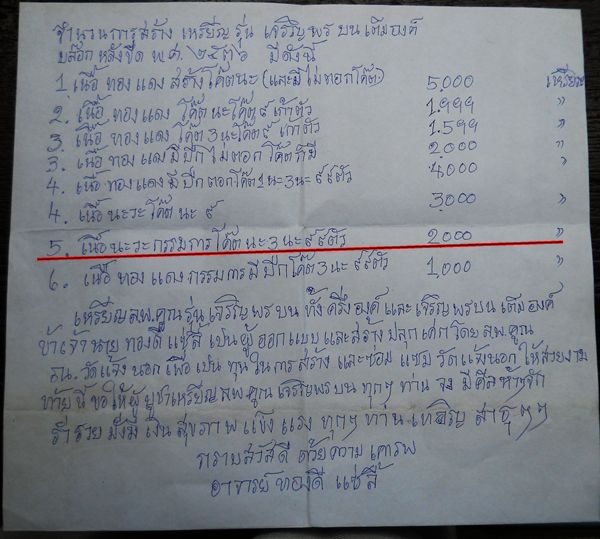 จำนวนการสร้าง เหรียญ รุ่น เจริญพร บน เต็มองค์
บล๊อก หลังขีด พ.ศ. ๒๕๓๖ มีดังนี้
1. เนื้อ ทองแดง สร้างโค๊ตนะ (และมีไม่ตอกโค๊ต) 5,000 เหรียญ
2. เนื้อ ทองแดง โค๊ตนะโค๊ต ๙ เก้าตัว 1.999 "
3. เนื้อ ทองแดง โค๊ต 3 นะโค๊ต ๙ เก้าตัว 1.599 "
3. เนื้อ ทองแดง มีปีก ไม่ตอก โค๊ตก็มี 2,000 "
4. เนื้อ ทองแดง มีปีก ตอกโค๊ต 1 นะ 3 นะ ๙ ๙ตัว 4,000
4. เนื้อ นะวะ โค๊ต นะ ๙ 3,000 "
5. เนื้อ นะวะ กรรมการ โค๊ต นะ 3 นะ ๙ ๙ตัว 2,000 "
6. เนื้อ ทองแดง กรรมการ มีปีก โค๊ต 3 นะ ๙ ๙ตัว 1,000 "
เหรียญ ลพ.คูณ รุ่น เจริญพร บน ทั้ง ครึ่งองค์ และ เจริญพร บน เต็มองค์
ข้าเจ้า นาย ทองดี แซ่ลี้ เป็น ผู้ ออก แบบ และ สร้าง ปลุกเศก โดย ลพ.คูณ
ณ. วัดแจ้ง นอก เพื่อ เป็น ทุน ใน การ สร้าง และ ซ่อม แซม วัดแจ้งนอก ให้ สวยงาม
ท้ายนี้ ขอให้ ผู้ บูชา เหรียญ ลพ.คูณ เจริญพร บน ทุกๆ ท่าน จง มี ศีล ห้าๆ
ร่ำรวย มั่งมี เงิน สุขภาพ แข็ง แรง ทุกๆ ท่าน เทอญ สาธุ ๆๆ
กราบสวัสดี ด้วยความ เคารพ
อาจารย์ ทองดี แซ่ลี้